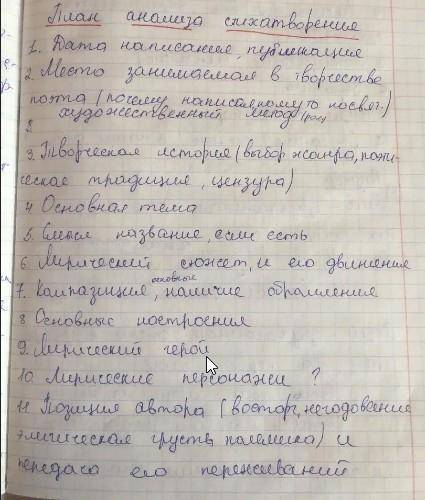 План анализа стихатворения
1. Дата написание, публикация
2. Место занимаемая в творчестве
поэта (почему написал, кому то посвят.)
художественный метод
2
3. Творческая история (выбор жанра, поэти-
ческое традиция, цензура)
4 Основная тема
5. Смысл название, если есть
6. Лирический сюжет, и его движения
основные
7. Кампазиция, наличие обрамления
8 Основные настроения
9. Лирический герой
10. Лирические персонажи ?
11 Позиция автора (восторг, негодование
элигическая грусть, палемика) и
передача его переживаний